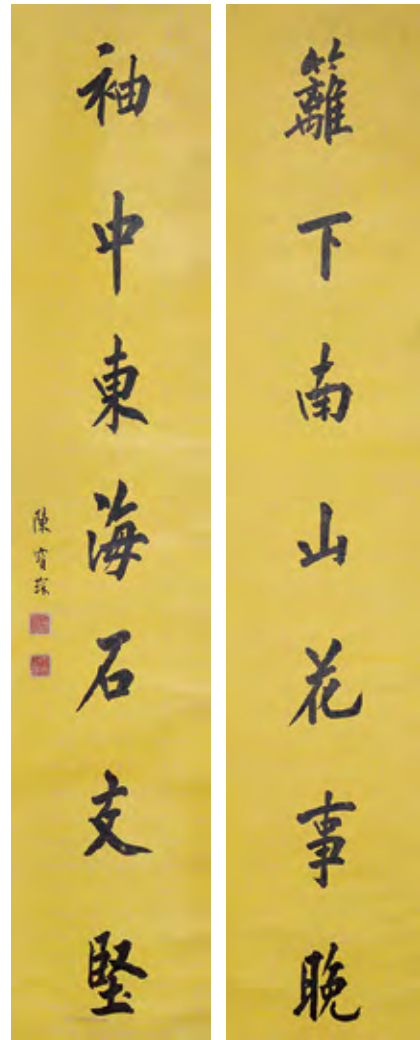 籬下南山花事晚
袖中東海石支堅
陳寶琛